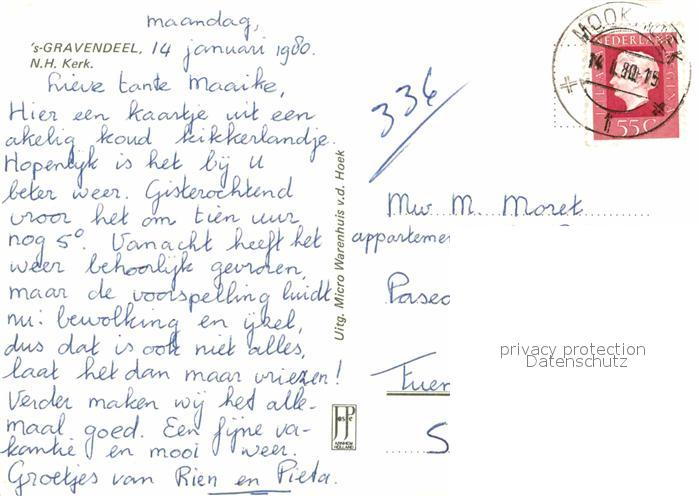 maandag,
's-GRAVENDEEL, 14 januari 1980.
N.H. Kerk.
Lieve tante Maaike,
Hier een kaartje uit een
akelig koud kikkerlandje.
Hopenlijk is het bij U
beter weer. Gisterochtend
vroor het om tien uur
nog 5°. Vannacht heeft het
weer behoorlijk gevroren,
maar de voorspelling luidt
nu: bewolking en ijzel,
dus dat is ook niet alles,
laat het dan maar vriezen!
Verder maken wij het alle-
maal goed. Een fijne va-
kantie en mooi weer.
Groetjes van Rien en Pieta.
Uitg. Micro Warenhuis v.d. Hoek
JosPé
ARNHEM
HOLLAND
336
MOOK
NEDERLAND
14 I 80.15
55 C
Mw M. Moret
apparteme
Paseo
Fuen
S
privacy protection
Datenschutz